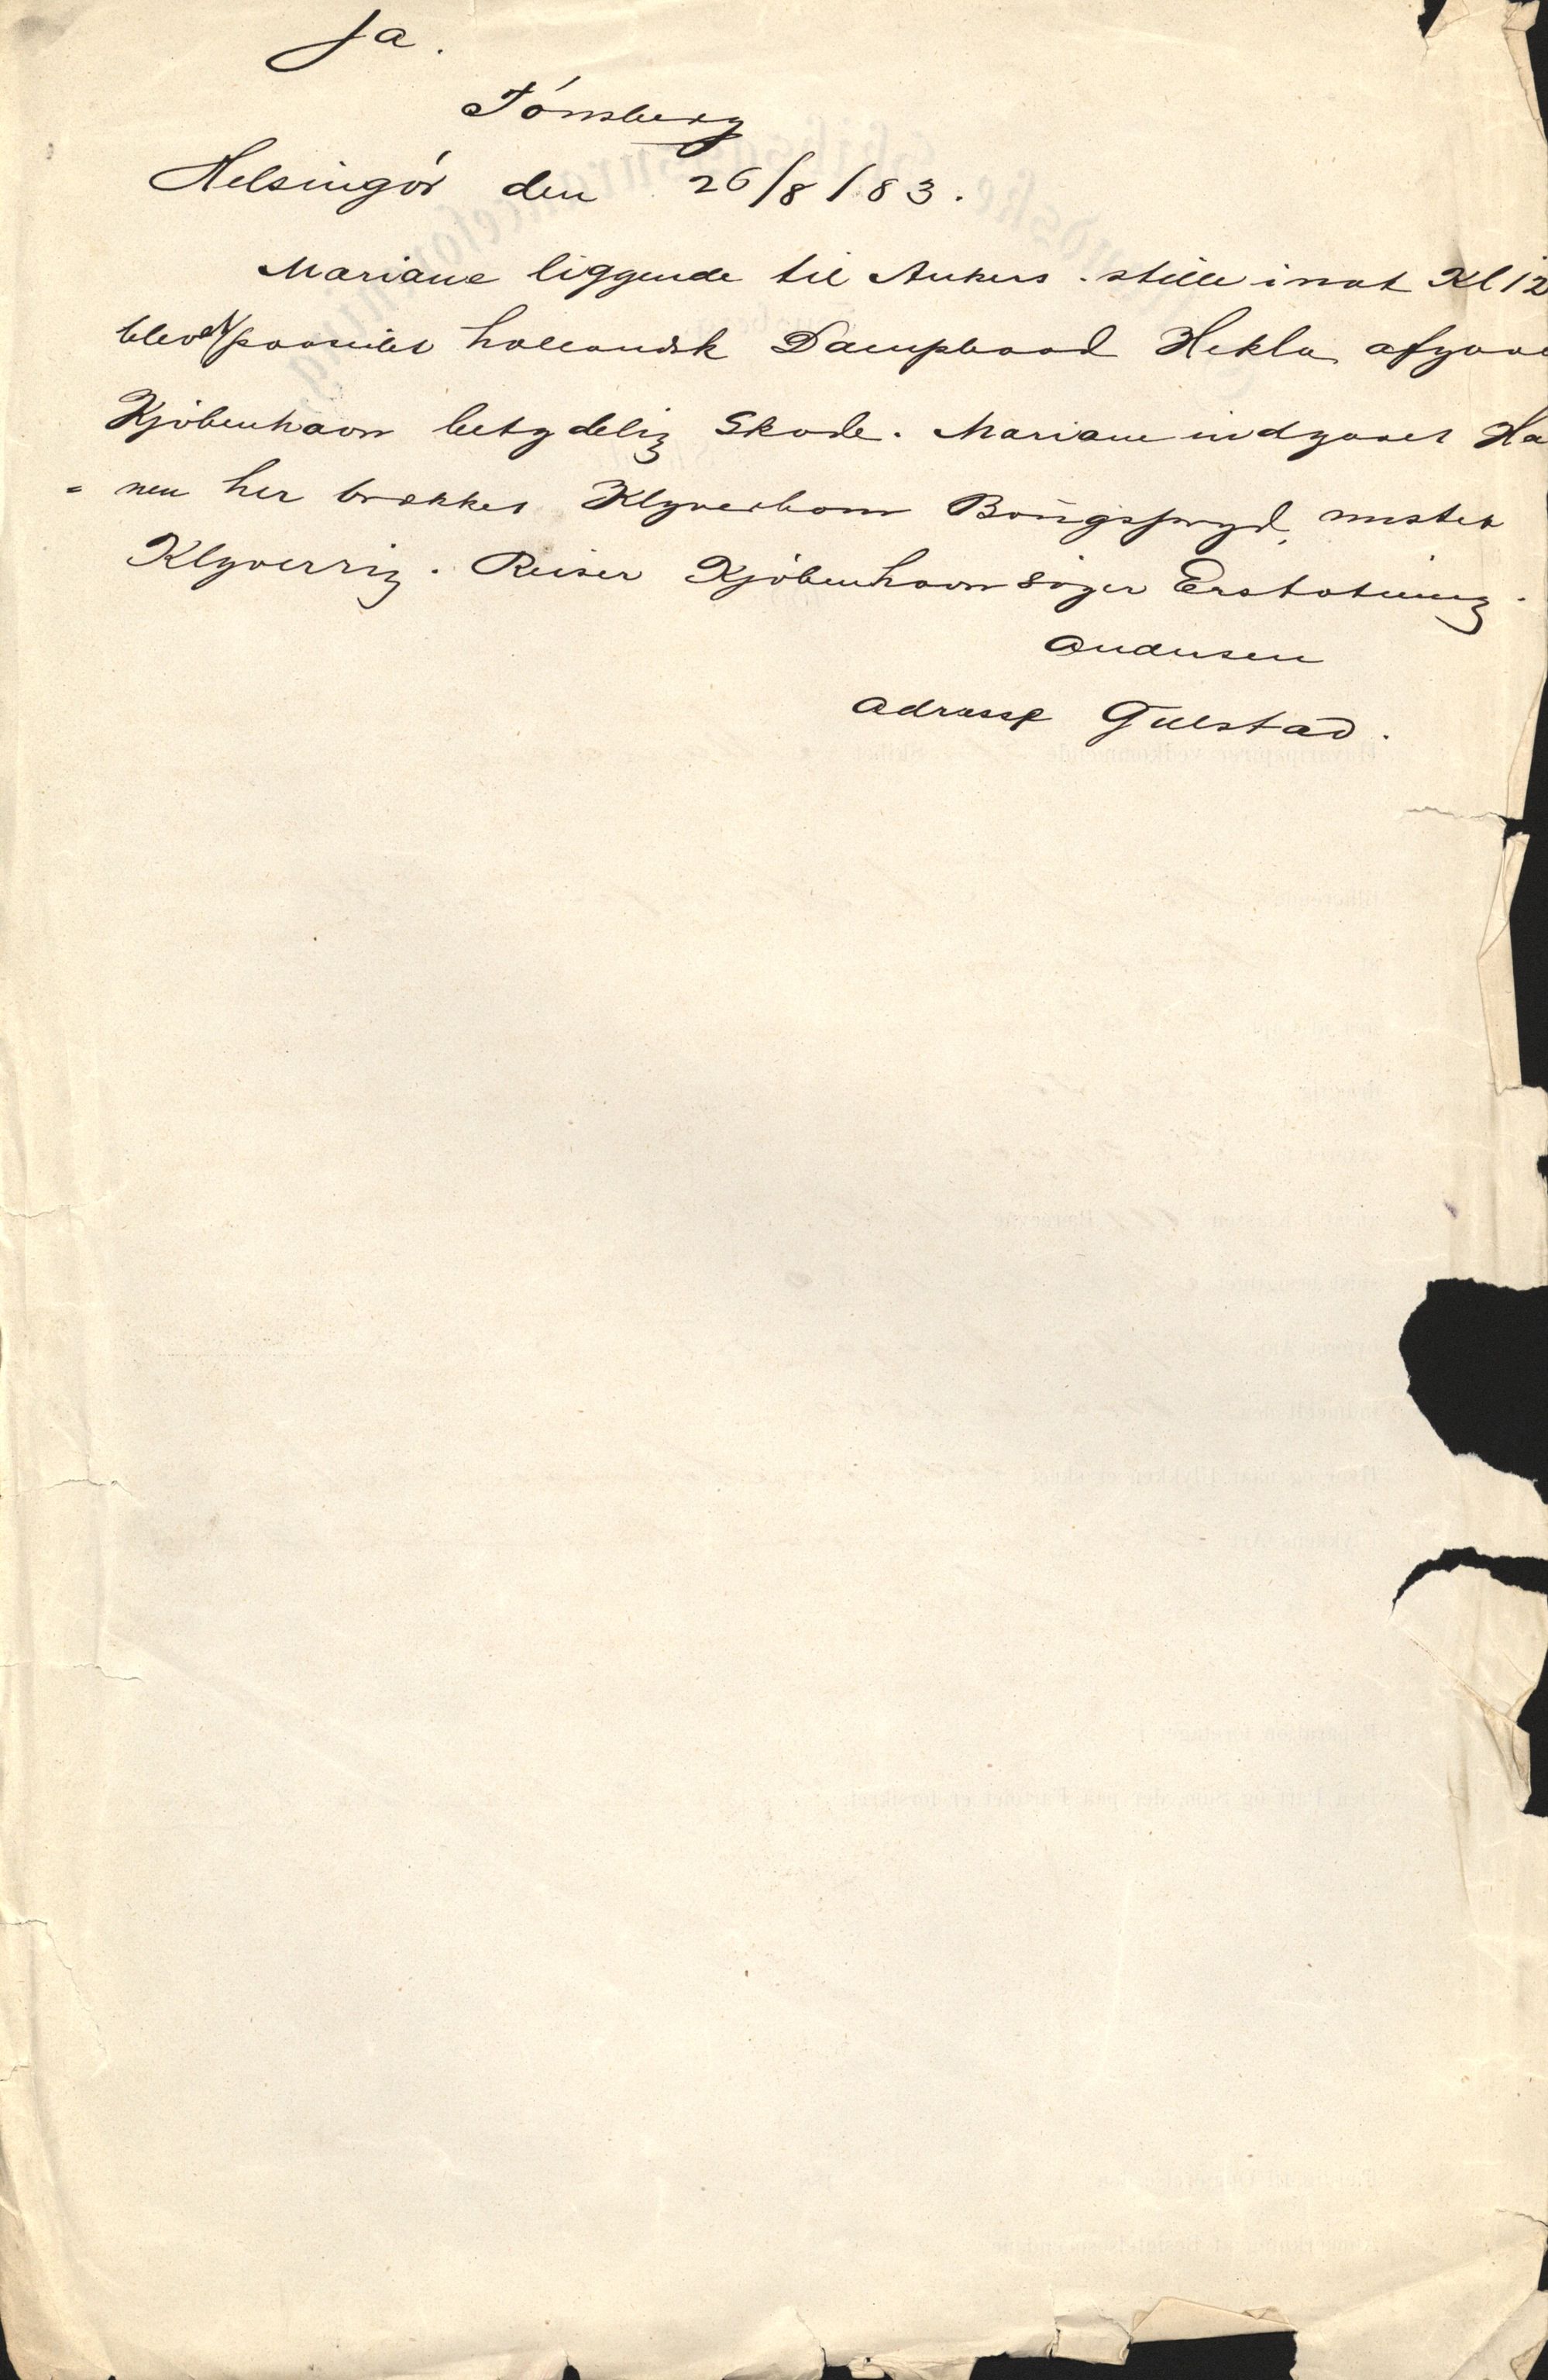 Ja.
Tönsberg
Helsingör den 26/8 183.
Mariane liggende til Ankers. stille inat Kl 12
blev af paaseilet hollandsk Dampbaad Hekla afgaae
Kjöbenhavn betydelig Skade. Mariane indgaaet Ha
= nen her brækket Klyverbom Bougspryd, mistet
Klyverrig. Reiser Kjöbenhavn söger Erstatning.
Andersen
adresse Gulstad.